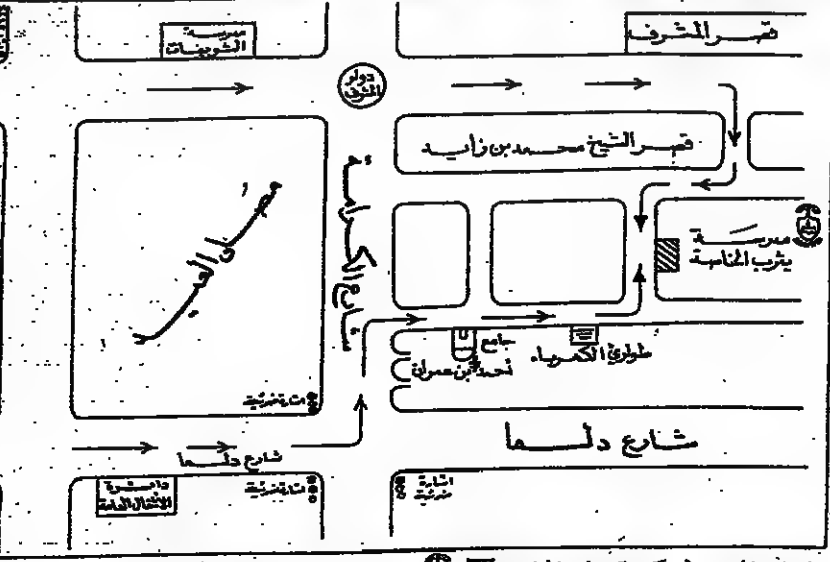 مدرسة
الشويفات
قصر المشرف
دوار
المشرف
قصر الشيخ محمد بن زايد
شارع الكرامة
مصلى العيد
مدرسة
يثرب الخاصة
جامع
أحمد بن عمران
طوارئ الكهرباء
اشارة ضوئية
شارع دلما
شارع دلما
دائرة
الأشغال العامة
اشارة ضوئية
اشارة
ضوئية